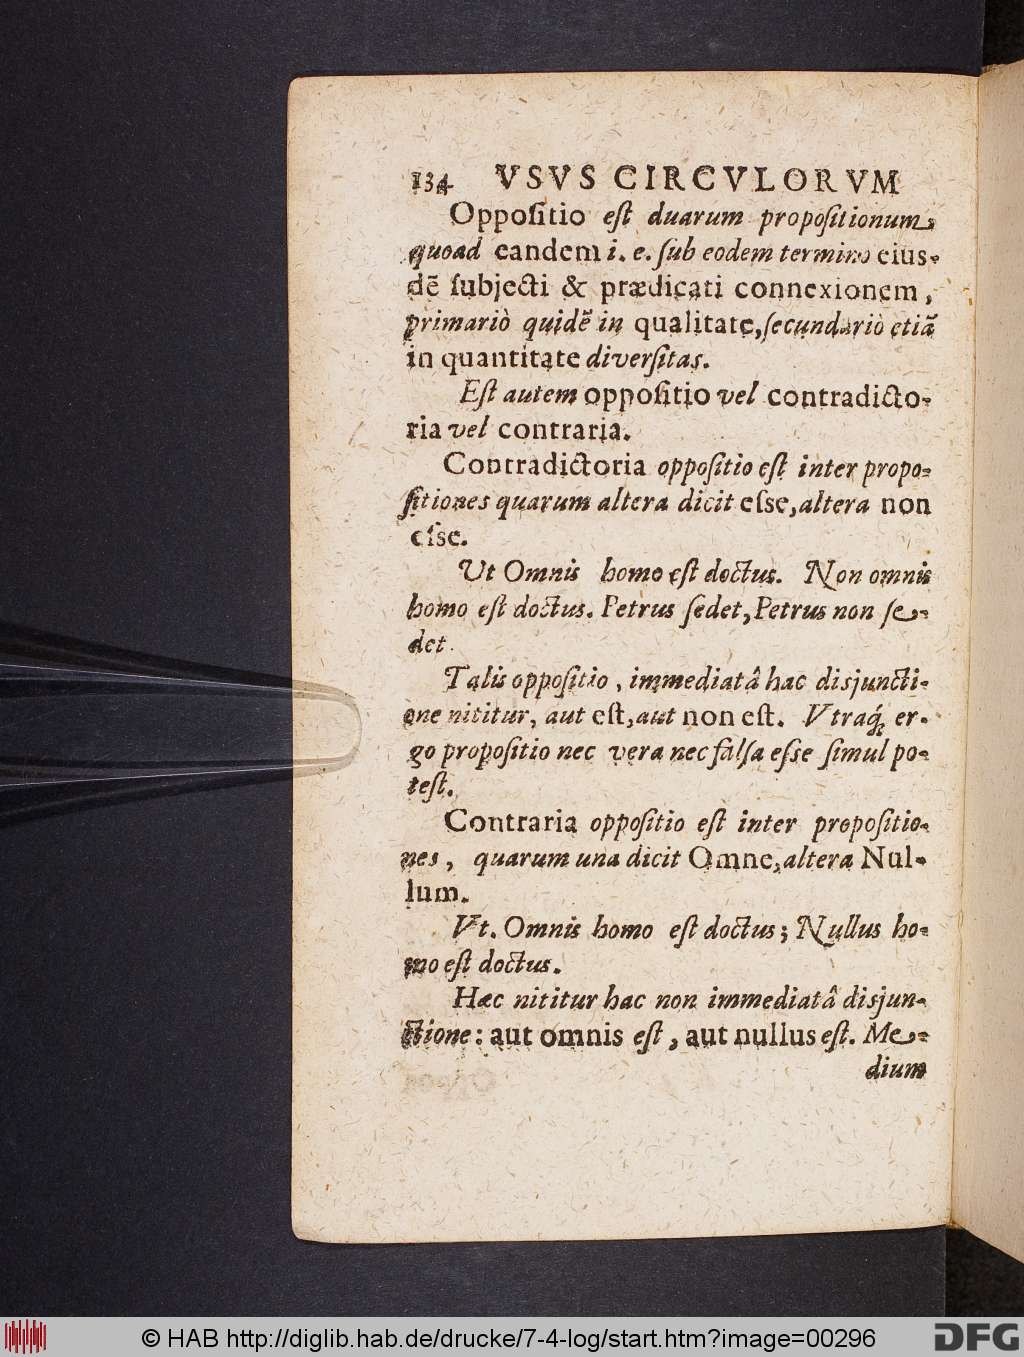 134 VSVS CIRCVLORVM
Oppoſitio eſt duarum propoſitionum
quoad eandem i. e. ſub eodem termino eius-
dē ſubjecti & prædicati connexionem,
primariò quidē in qualitate, ſecundariò etiā
in quantitate diverſitas.
Eſt autem oppoſitio vel contradicto-
ria vel contraria.
Contradictoria oppoſitio eſt inter propo-
ſitiones quarum altera dicit eſſe, altera non
eſſe.
Ut Omnis homo eſt doctus. Non omnis
homo eſt doctus. Petrus ſedet, Petrus non ſe-
det.
Talis oppoſitio, immediatâ hac disjuncti-
one nititur, aut eſt, aut non eſt. Vtraq́; er-
go propoſitio nec vera nec falſa eſſe ſimul po-
teſt.
Contraria oppoſitio eſt inter propoſitio-
nes, quarum una dicit Omne, altera Nul-
lum.
Vt. Omnis homo eſt doctus; Nullus ho-
mo eſt doctus.
Hæc nititur hac non immediatâ disjun-
ctione: aut omnis eſt, aut nullus eſt. Me-
dium
© HAB http://diglib.hab.de/drucke/7-4-log/start.htm?image=00296
DFG